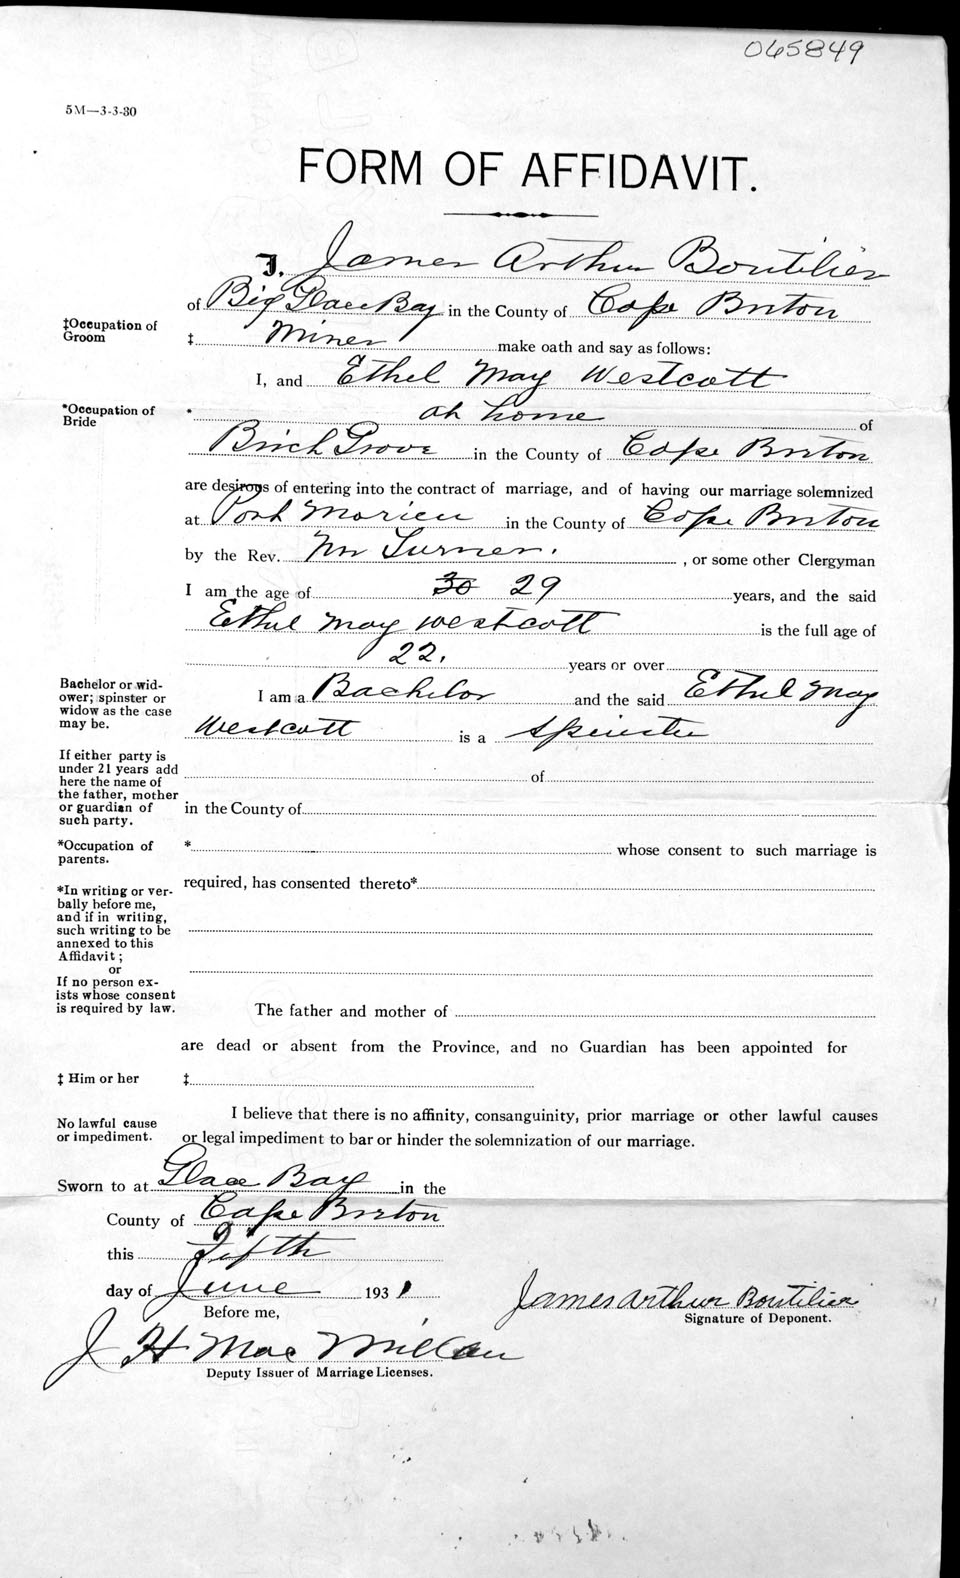 065849
5M—3-3-30
FORM OF AFFIDAVIT.
I, James Arthur Boutilier
of Big Glace Bay in the County of Cape Breton
‡Occupation of Groom
‡ Miner make oath and say as follows:
I, and Ethel May Westcott
*Occupation of Bride
* at home of
Birch Grove in the County of Cape Breton
are desirous of entering into the contract of marriage, and of having our marriage solemnized
at Port Morien in the County of Cape Breton
by the Rev. Mr Turner. , or some other Clergyman
I am the age of 30 29 years, and the said
Ethel May Westcott is the full age of
22. years or over
Bachelor or widower; spinster or widow as the case may be.
I am a Bachelor and the said Ethel May
Westcott is a Spinster
If either party is under 21 years add here the name of the father, mother or guardian of such party.
of
in the County of
*Occupation of parents.
* whose consent to such marriage is
required, has consented thereto*
*In writing or verbally before me, and if in writing, such writing to be annexed to this Affidavit;
or
If no person exists whose consent is required by law.
The father and mother of
are dead or absent from the Province, and no Guardian has been appointed for
‡ Him or her ‡
No lawful cause or impediment.
I believe that there is no affinity, consanguinity, prior marriage or other lawful causes
or legal impediment to bar or hinder the solemnization of our marriage.
Sworn to at Glace Bay in the
County of Cape Breton
this Fifth
day of June 1931
Before me,
James Arthur Boutilier
Signature of Deponent.
J H MacMillan
Deputy Issuer of Marriage Licenses.